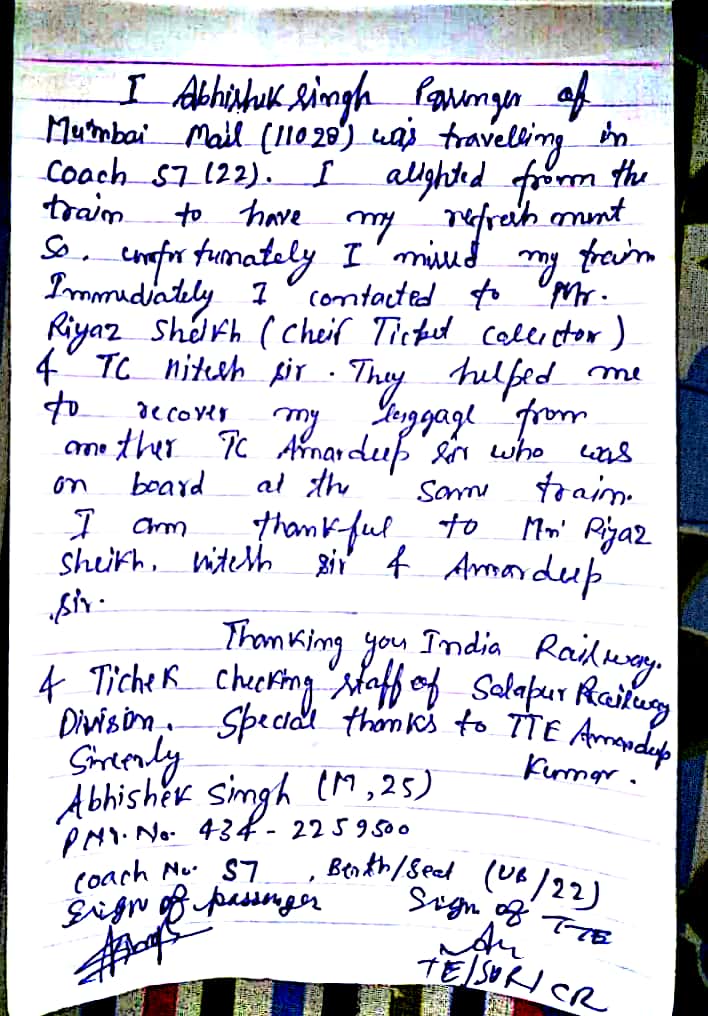 I Abhishek Singh Passenger of
Mumbai Mail (11028) was travelling in
Coach S7 (22). I alighted from the
train to have my refreshment
So. unfortunately I missed my train
Immediately I contacted to Mr.
Riyaz Sheikh (Cheif Ticket Collector)
& TC Nitesh sir. They helped me
to recover my luggage from
another TC Amardeep Sir who was
on board at the same train.
I am thankful to Mr Riyaz
Sheikh, Nitesh sir & Amardeep
sir.
Thanking you India Railway.
& Tichek Checking staff of Solapur Railway
Division. Special thanks to TTE Amardeep
Kumar.
Sincerly
Abhishek Singh (M,25)
PNR. No. 434-2259500
Coach No. S7, Berth/Seat (UB/22)
Sign of passenger Sign of TTE
TE/SUR/CR